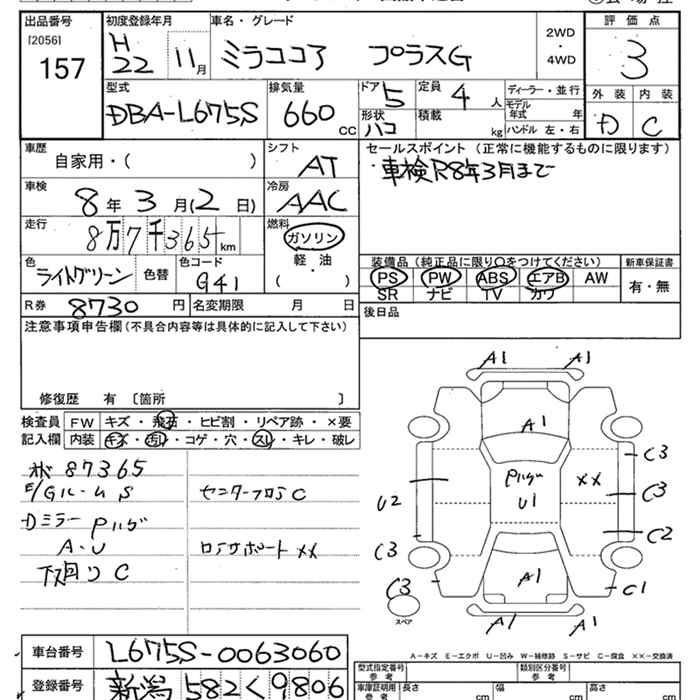 出品番号
[2056]
157
初度登録年月
H
22
11月
車名・グレード
ミラココア プラスG
2WD
・
4WD
評価点
3
型式
DBA-L675S
排気量
660
cc
ドア
5
定員
4
人
形状
ハコ
積載
kg
ディーラー・並行
モデル
年式 年
ハンドル 左・右
外装 内装
D C
車歴
自家用・( )
シフト
AT
車検
8年3月(2日)
冷房
AAC
走行
8万7千365km
燃料
ガソリン
軽・油
( )
色
ライトグリーン
色替
色コード
G41
R券
8730円
名変期限 月 日
セールスポイント (正常に機能するものに限ります)
車検R8年3月まで
装備品(純正品に限り○をつけてください)
新車保証書
PS PW ABS エアB AW
SR ナビ TV カワ
有・無
後日品
注意事項申告欄(不具合内容等は具体的に記入して下さい)
修復歴 有 〔箇所 〕
検査員
記入欄
FW キズ・飛石・ヒビ割・リペア跡・×要
内装 キズ・汚れ・コゲ・穴・スレ・キレ・破レ
87365
E/Gルーム S
センターフロS C
Dミラー
A・U
XX
下回り C
A1 A1
A1
U1
XX
C3
C3
C2
U2
C3
C3
C1
A1
A1 A1
スペア
A-キズ E-エクボ U-凹み W-補修跡 S-サビ C-腐食 XX-交換済
車台番号
L675S-0063060
登録番号
新潟 582 く 9806
型式指定番号
参考
類別区分番号
参考
車庫証明用
参考
長さ cm
幅 cm
高さ cm